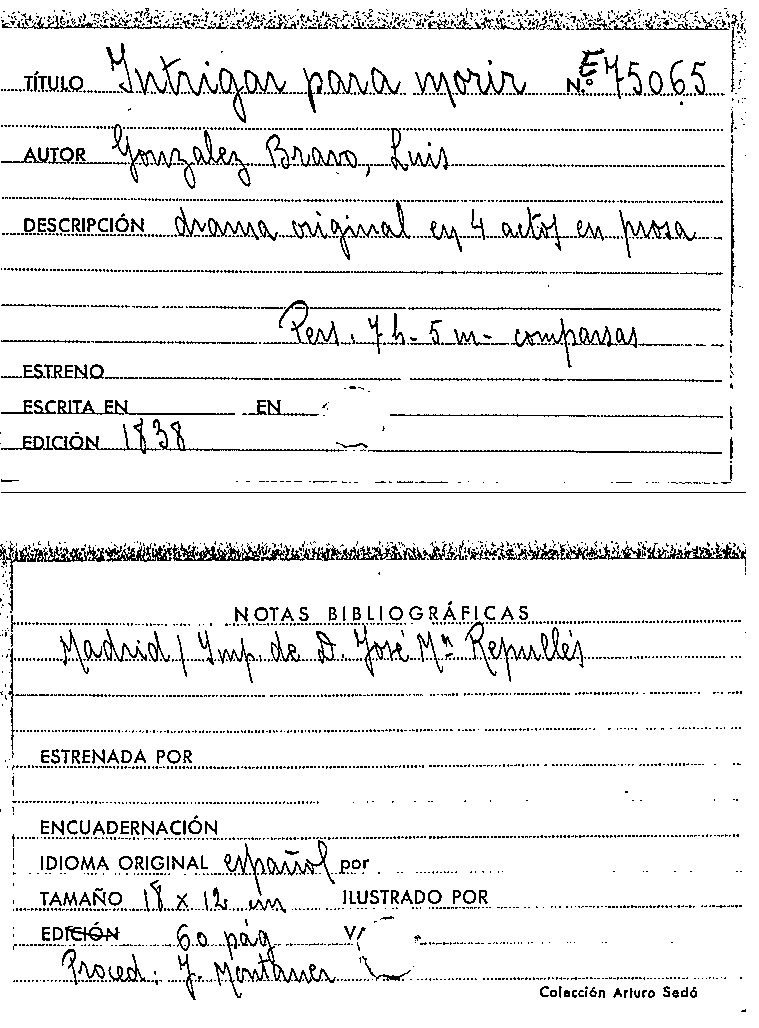 TÍTULO Intrigar para morir N.º E 75065
AUTOR Gonzalez Bravo, Luis
DESCRIPCIÓN drama original en 4 actos en prosa
Pers. 7 h- 5 m- comparsas
ESTRENO
ESCRITA EN EN
EDICIÓN 1838
NOTAS BIBLIOGRÁFICAS
Madrid / Imp. de D. José Mª Repullés
ESTRENADA POR
ENCUADERNACIÓN
IDIOMA ORIGINAL español por
TAMAÑO 18 x 12 cm ILUSTRADO POR
EDICIÓN 60 pág V/
Proced: J. Montaner
Colección Arturo Sedó